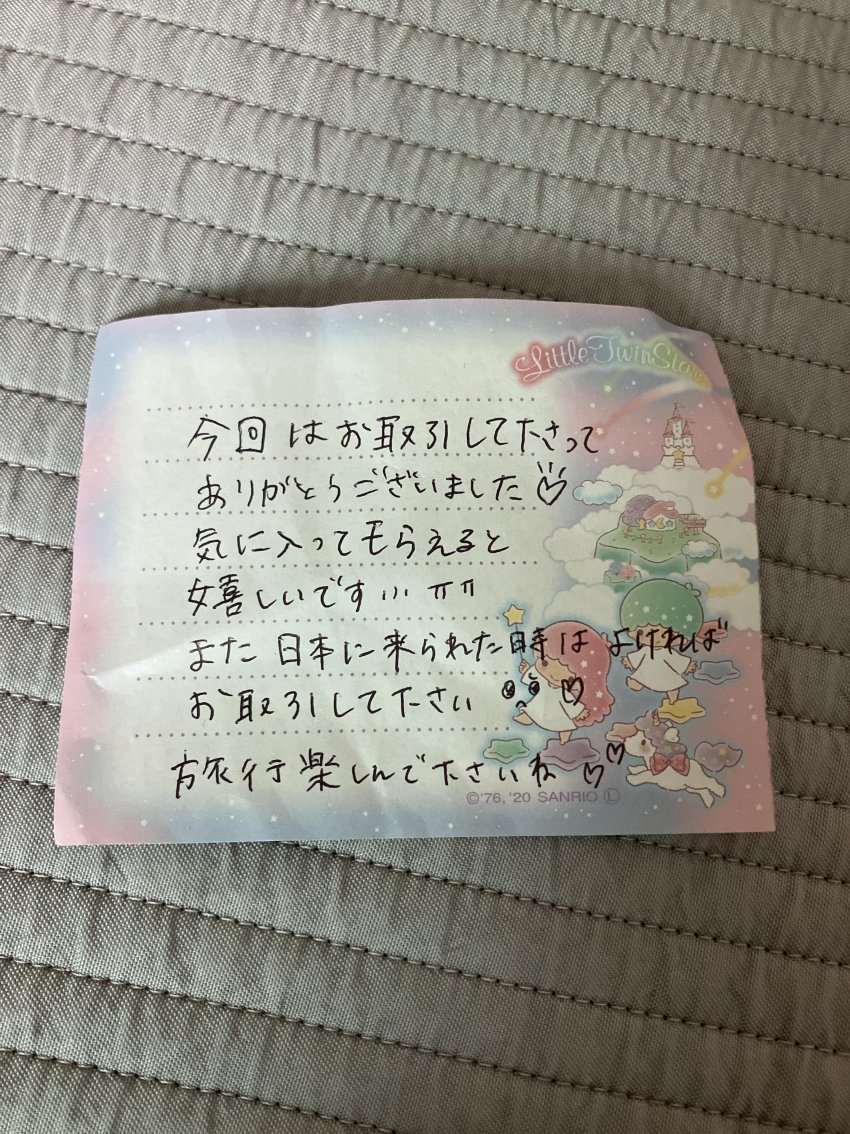 Little Twin Stars
今回はお取引して下さって
ありがとうございました♡
気に入ってもらえると
嬉しいです ;;; ㅠㅠ
また日本に来られた時は よければ
お取引して下さい ♡
旅行楽しんで下さいね ♡♡
©'76, '20 SANRIO Ⓛ